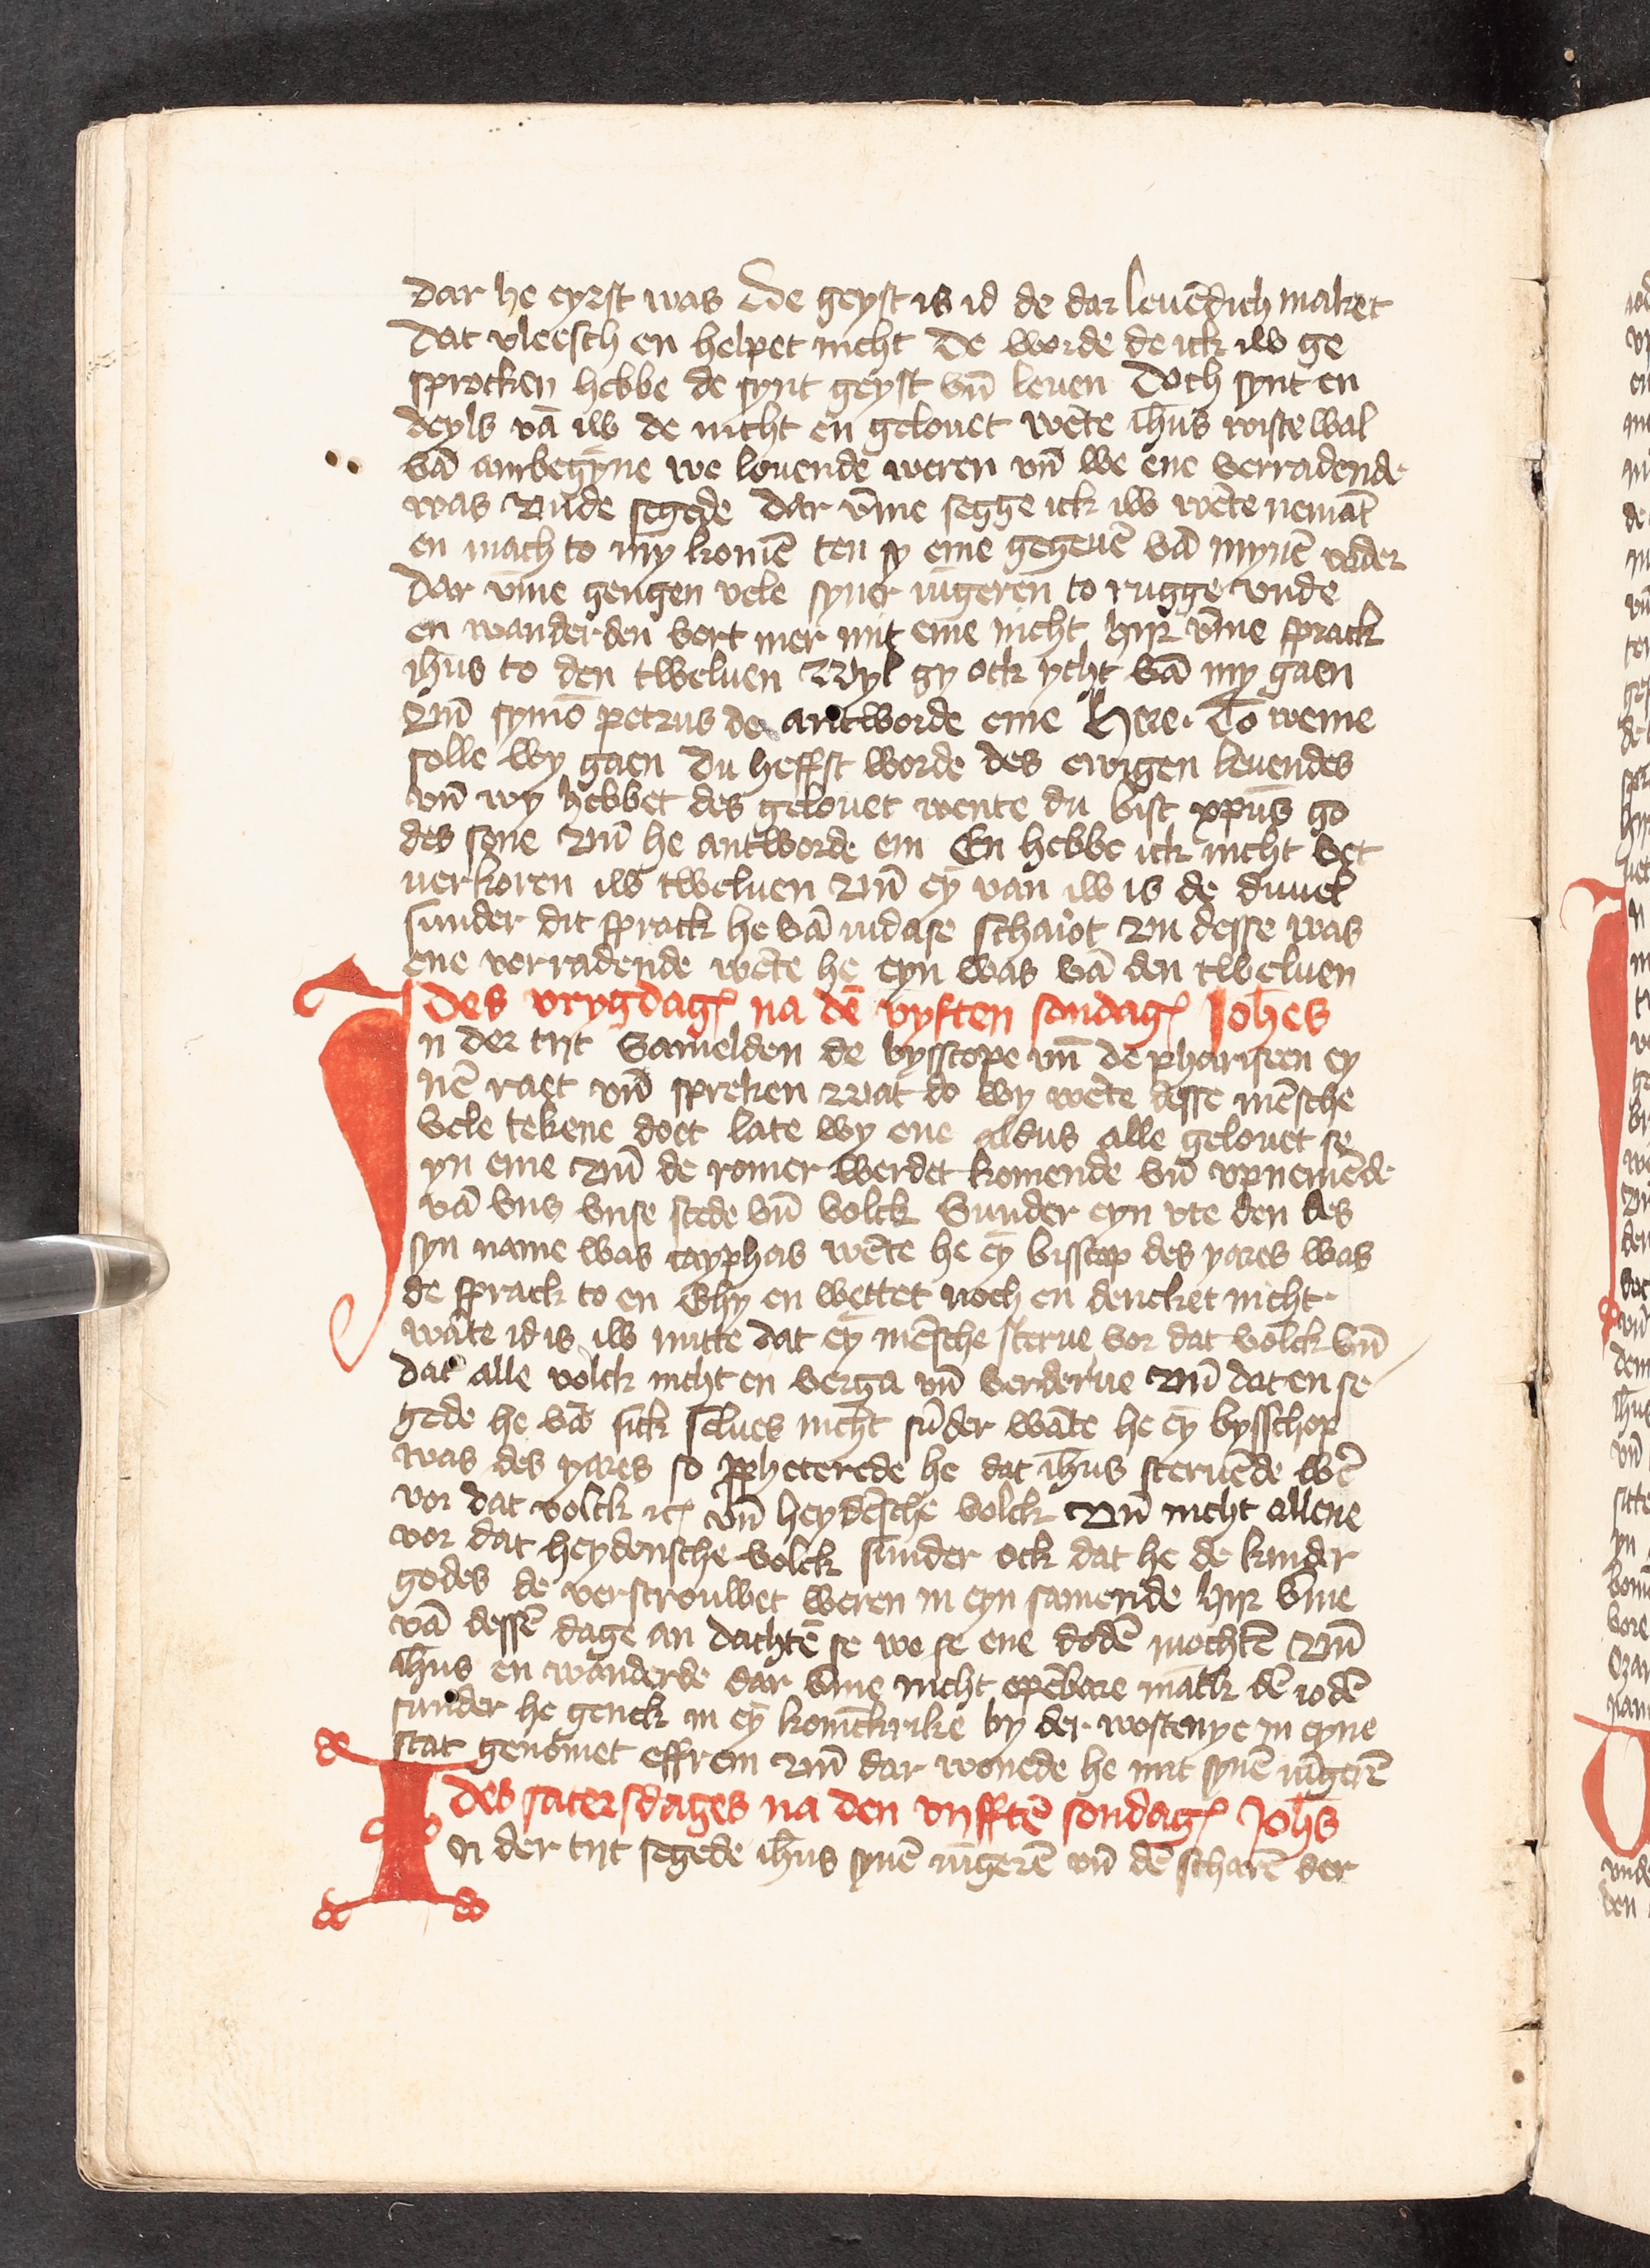 dar he eyrst was De geyst is id de dar leuēdich maket
Dat vleesch en helpet nicht De worde de ick iw ge
sprocken hebbe de synt geyst vn̄ leuen Doch synt en
deyls vā iw de nicht en gelouet wēte ih̄us wiste wal
vā anbegȳne we louende weren vn̄ we ene verradende
was Vnde segede Dar v̄me segghe ick iw wēte nemāt
en mach to my komē ten sy eme gegeuē vā mynē vader
Dar v̄me gengen vele syner iūgeren to rugge vnde
en wanderden vort mer mit eme nicht hyr v̄me sprack
ih̄us to den tweluen Wyl gy ock ycht vā my gaen
Vn̄ symō petrus de antworde eme Here. To weme
solle wy gaen Du heffst worde des ewigen leuendes
vn̄ wy hebbet des gelouet wente du bist xp̄us go
des sone Vn̄ he antworde em En hebbe ick nicht vet
uerkoren iw tweluen Vn̄ eȳ van iw is de duuel
sunder dit sprack he vā iudase schariot Vn desse was
ene verradende wēte he eyn was vā den tweluen
Des vrygdaḡ na dē vyften sondaḡ Joh̄es
In der tyt Samelden de bysscope vn̄ de phariseen ey
nē raet vn̄ spreken Wat do wy wēte desse mēsche
vele tekene doet late wy ene aldus alle gelouet se
yn eme Vn̄ de romer werdet komende vn̄ vpnemēde
vā vns vnse stede vn̄ volck Sunder eyn vte den des
syn name was cayphas wēte he eȳ bisscop des yares was
de sprack to en Ghy en wettet noch en dencket nicht
wāte id is iw nutte dat eȳ mēsche sterue vor dat volck vn̄
dat alle volck nicht en verga vn̄ verderue Vn̄ dat en se
gede he vā sick selues nicht sūder wāte he eȳ bysschop
was des yares so ꝓpheterede he dat ih̄us steruēde wē
vor dat volck vn̄ heydēsche volck Vn̄ nicht allene
vor dat heydensche volck sunder ock dat he de kinder
godes de verstrouwet weren in eyn samende hyr v̄me
vā dessē dage an dachtē se we se ene dodē mochtē Vn̄
ih̄us en wanderde dar v̄me nicht opēbare māck dē iodē
sunder he genck in eȳ konīckrike by der wostenye in eyne
stat genomet effrem Vn̄ dar wonede he mit synē iūgerē
Des satersdages na den vyfftē sondaḡ Joh̄s
In der tyt segede ih̄us synē iūgerē vn̄ dē scharē der